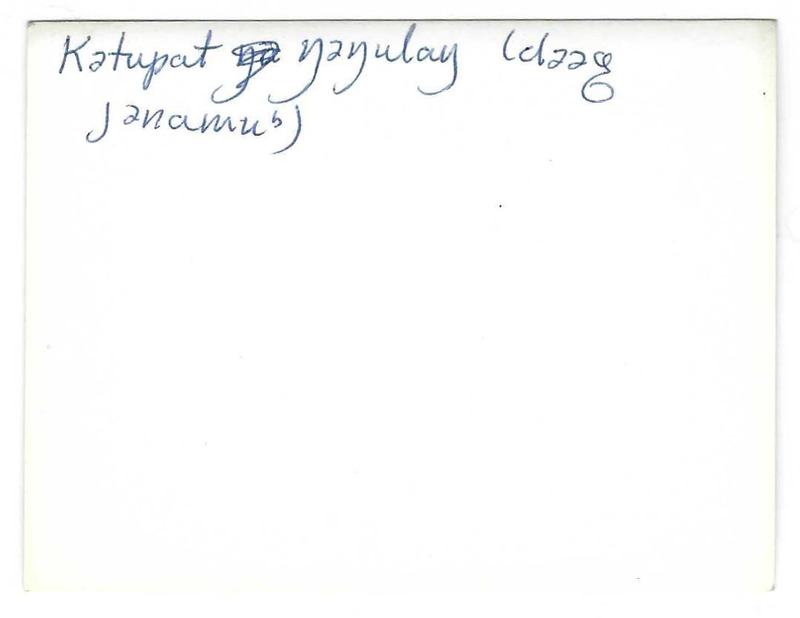 Kətupat ŋəŋulay (daəg
Jənamuʰ)